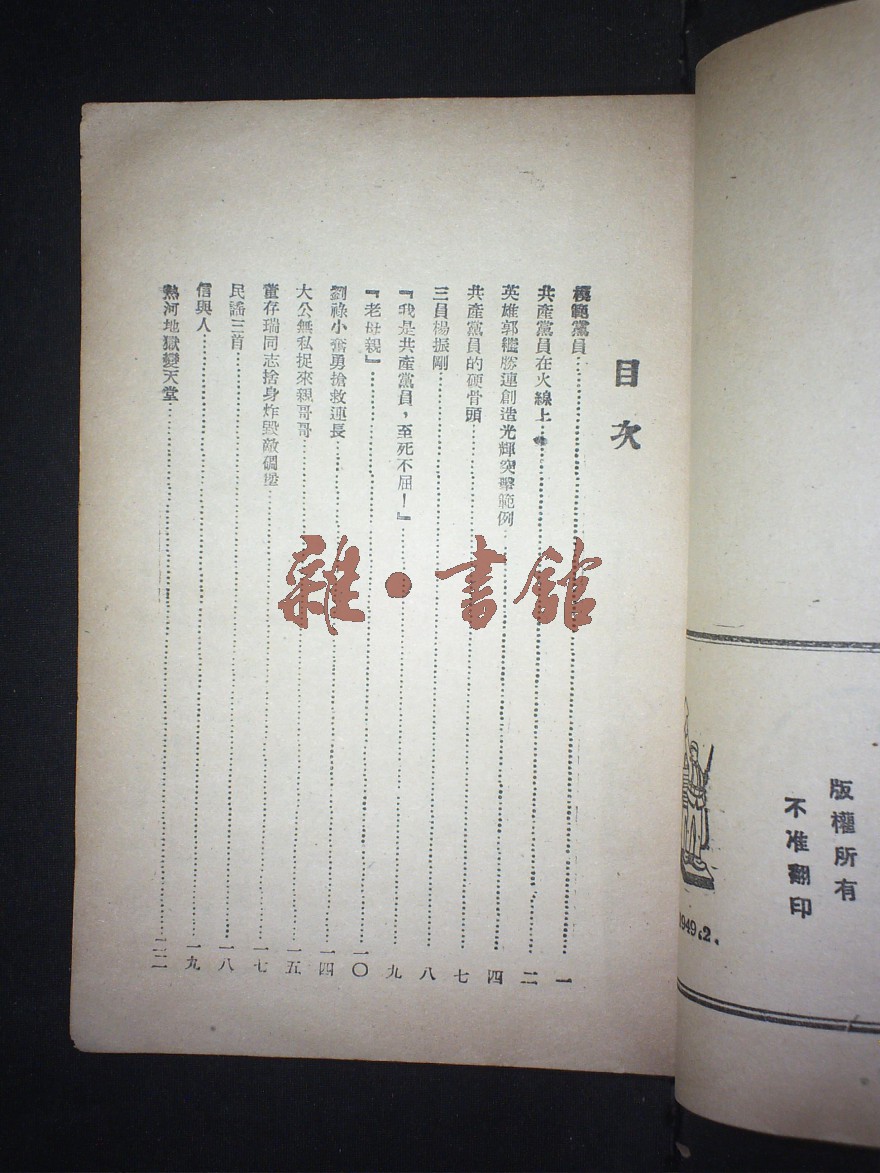 版權所有
不准翻印
1949.2.
目次
模範黨員……一
共產黨員在火線上……二
英雄郭繼勝連創造光輝突擊範例……四
共產黨員的硬骨頭……七
三員楊振剛……八
『我是共產黨員，至死不屈！』……九
『老母親』……一〇
劉祿小奮勇搶救連長……一四
大公無私捉來親哥哥……一五
董存瑞同志捨身炸毀敵碉堡……一七
民謠三首……一八
信與人……一九
熱河地獄變天堂……二二
雜·書館